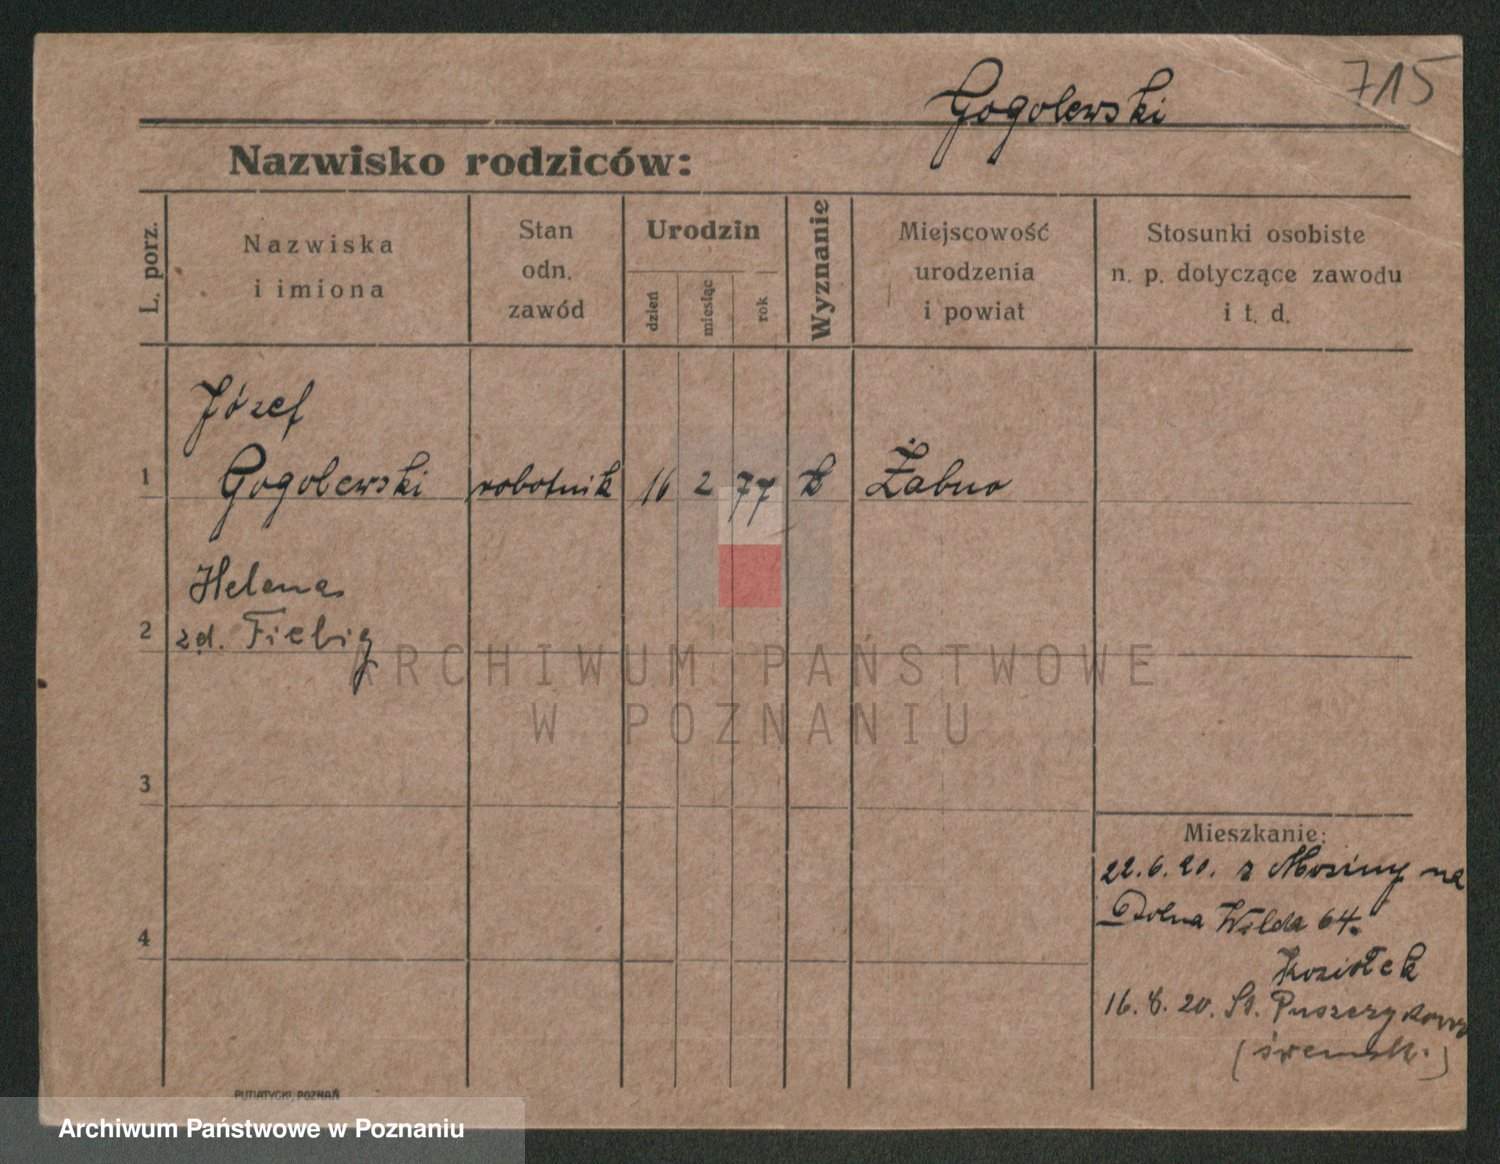 715
Gogolewski
Nazwisko rodziców:
L. porz.
Nazwiska
i imiona
Stan
odn.
zawód
Urodzin
dzień
miesiąc
rok
Wyznanie
Miejscowość
urodzenia
i powiat
Stosunki osobiste
n. p. dotyczące zawodu
i t. d.
Józef
1 Gogolewski robotnik 16 2 77 k Żabno
Helena
2 zd. Fiebig
ARCHIWUM PAŃSTWOWE
W POZNANIU
3
Mieszkanie:
22.6.20. z Mosiny na
Dolna Wilda 64.
4
Koziołek
16.8.20.
PUTIATYCKI, POZNAŃ
Archiwum Państwowe w Poznaniu